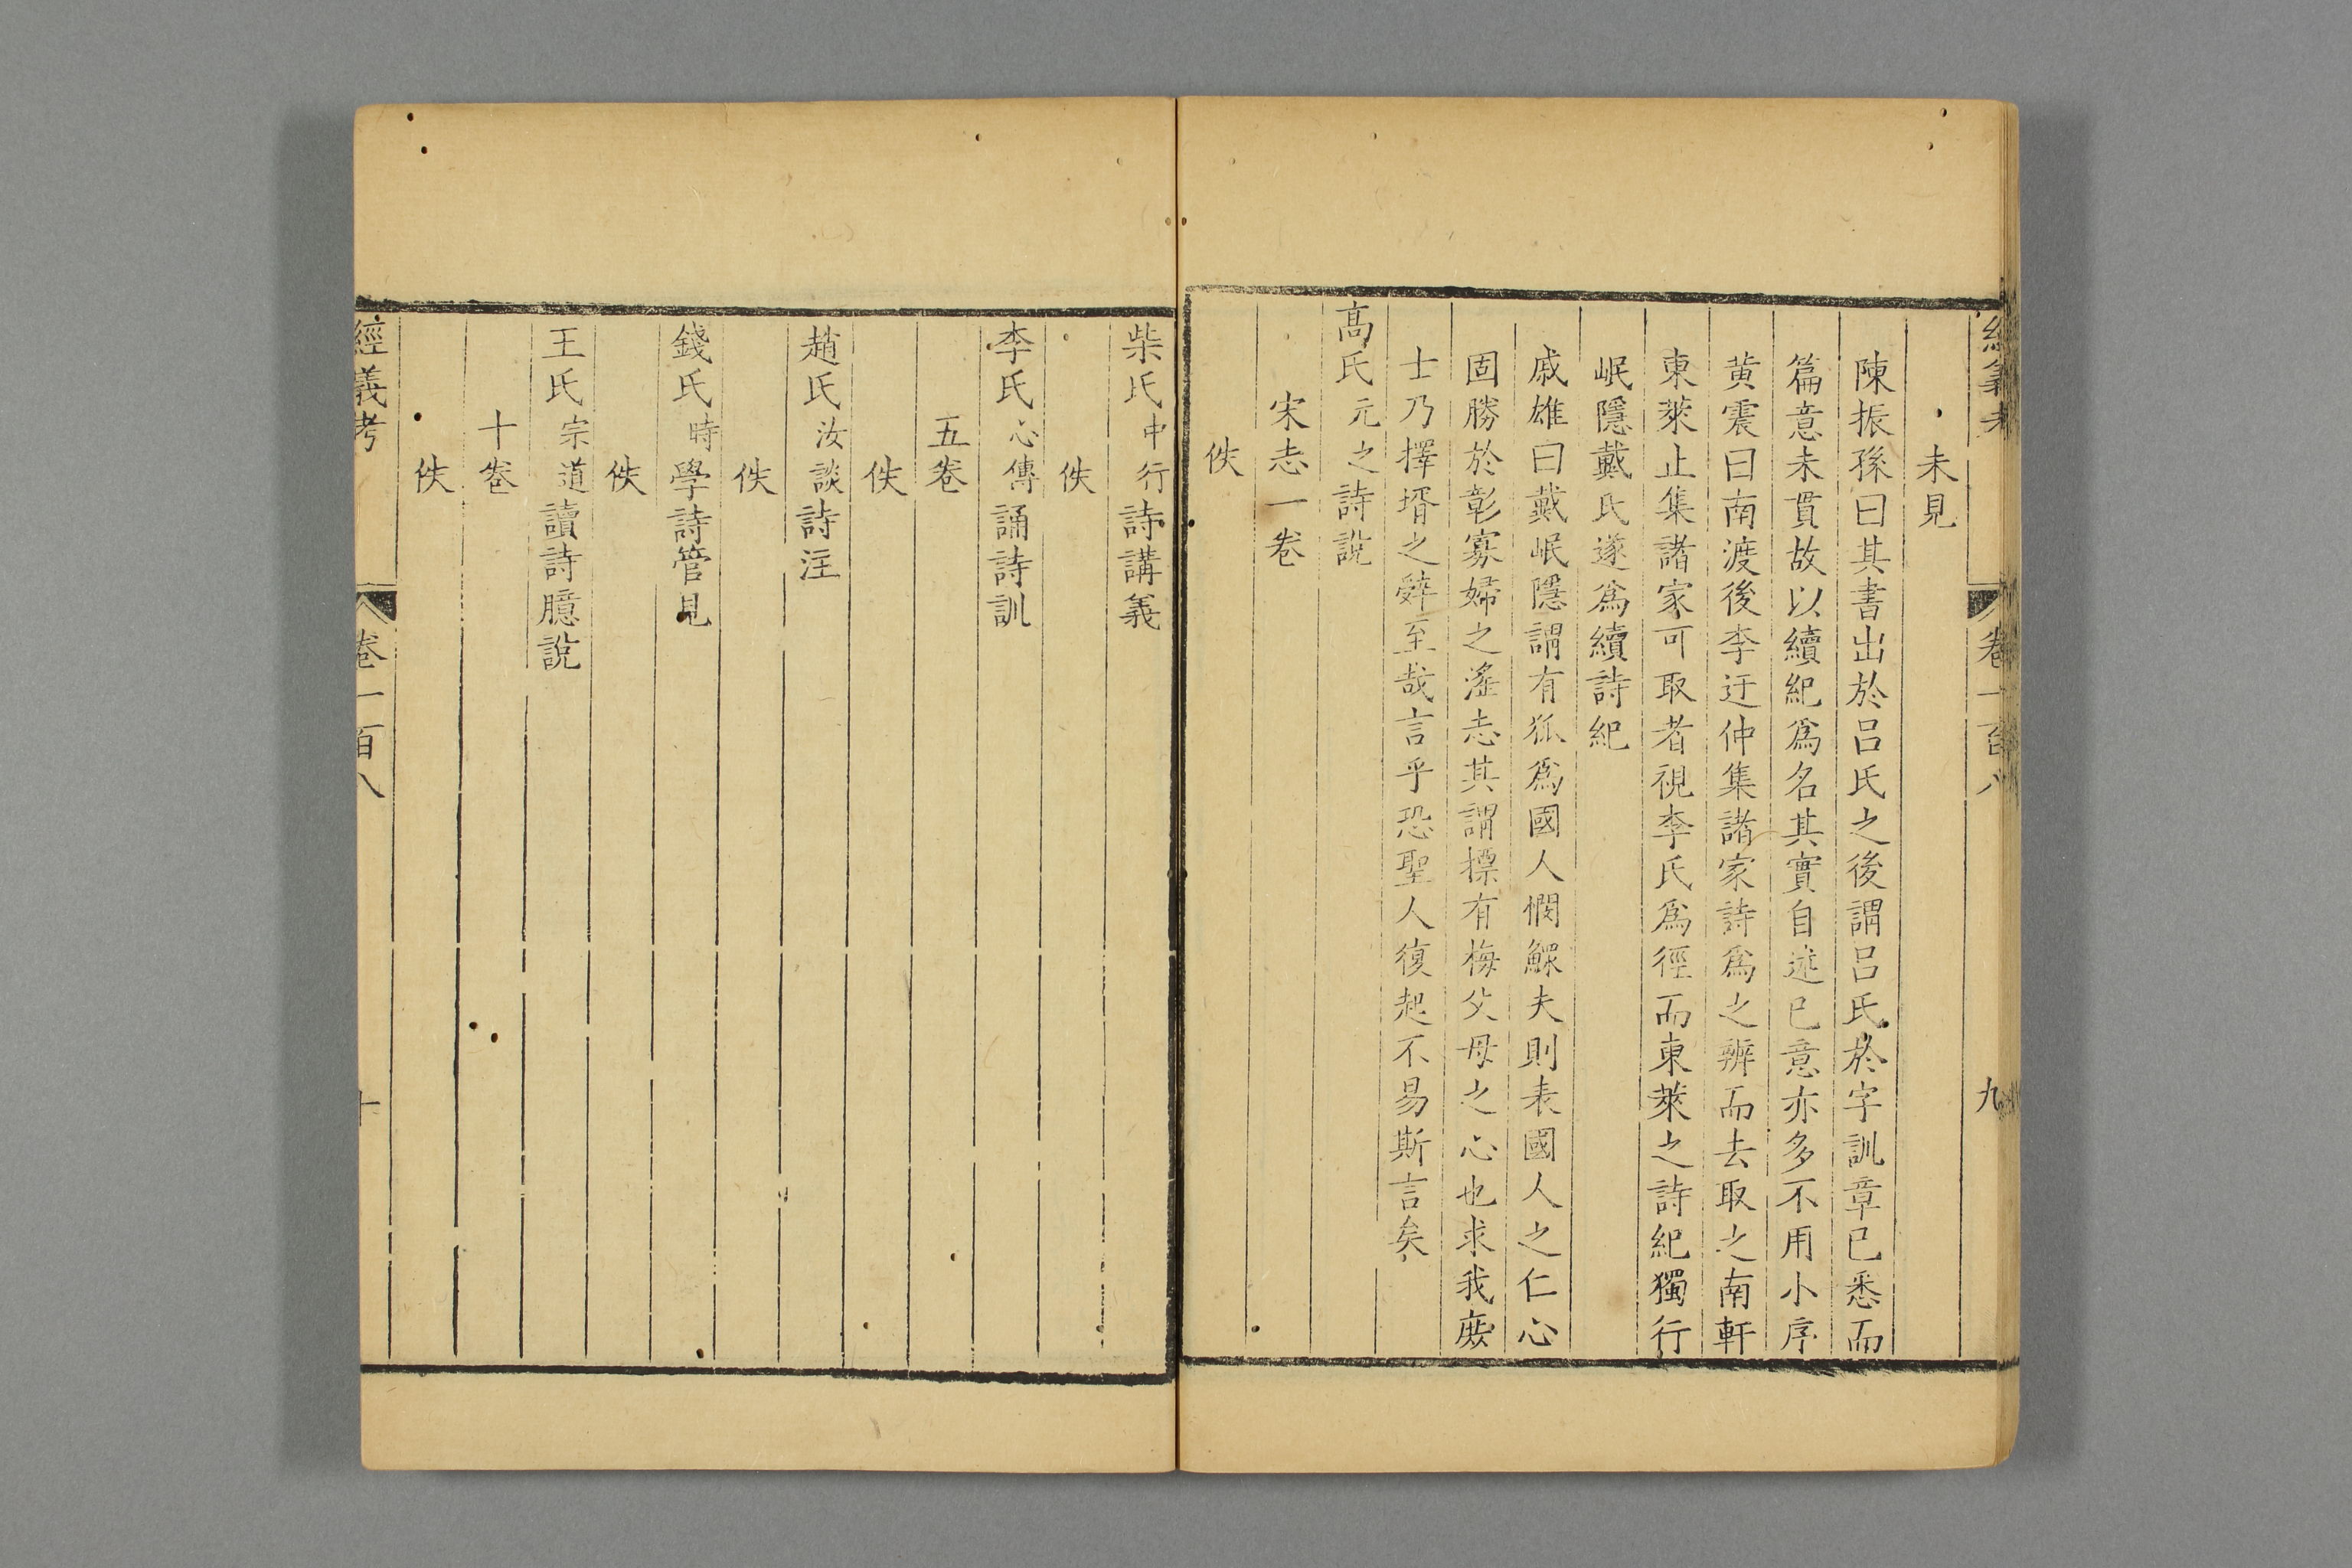 經義考 卷一百八 九
未見
陳振孫曰其書出於呂氏之後謂呂氏於字訓章已悉而
篇意未貫故以續紀爲名其實自述已意亦多不用小序
黄震曰南渡後李迂仲集諸家詩爲之辨而去取之南軒
東萊止集諸家可取者視李氏爲徑而東萊之詩紀獨行
岷隱戴氏遂爲續詩紀
戚雄曰戴岷隱謂有狐爲國人憫鰥夫則表國人之仁心
固勝於彰寡婦之滛志其謂摽有梅父母之心也求我庶
士乃擇壻之辤至哉言乎恐聖人復起不易斯言矣
高氏元之詩說
宋志一卷
佚
柴氏中行詩講義
佚
李氏心傳誦詩訓
五卷
佚
趙氏汝談詩注
佚
錢氏時學詩管見
佚
王氏宗道讀詩臆說
十卷
佚
經義考 卷一百八 十